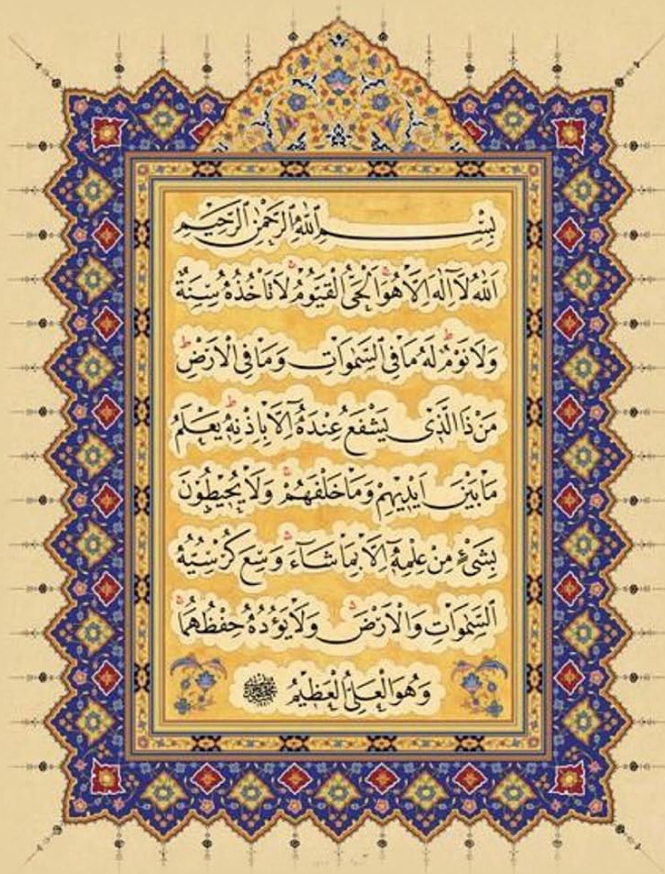 بِسْمِ اللّٰهِ الرَّحْمٰنِ الرَّحِيمِ
اَللّٰهُ لَٓا اِلٰهَ اِلَّا هُوَۚ اَلْحَىُّ الْقَيُّومُۚ لَا تَأْخُذُهُ سِنَةٌ
وَلَا نَوْمٌۜ لَهُ مَا فِى السَّمٰوَاتِ وَمَا فِى الْاَرْضِۜ
مَنْ ذَا الَّذٖى يَشْفَعُ عِنْدَهُٓ اِلَّا بِاِذْنِهٖۜ يَعْلَمُ
مَا بَيْنَ اَيْدٖيهِمْ وَمَا خَلْفَهُمْۚ وَلَا يُحٖيطُونَ
بِشَىْءٍ مِنْ عِلْمِهٖٓ اِلَّا بِمَا شَٓاءَۚ وَسِعَ كُرْسِيُّهُ
السَّمٰوَاتِ وَالْاَرْضَۚ وَلَا يَؤُ۫دُهُ حِفْظُهُمَاۚ
وَهُوَ الْعَلِىُّ الْعَظٖيمُ